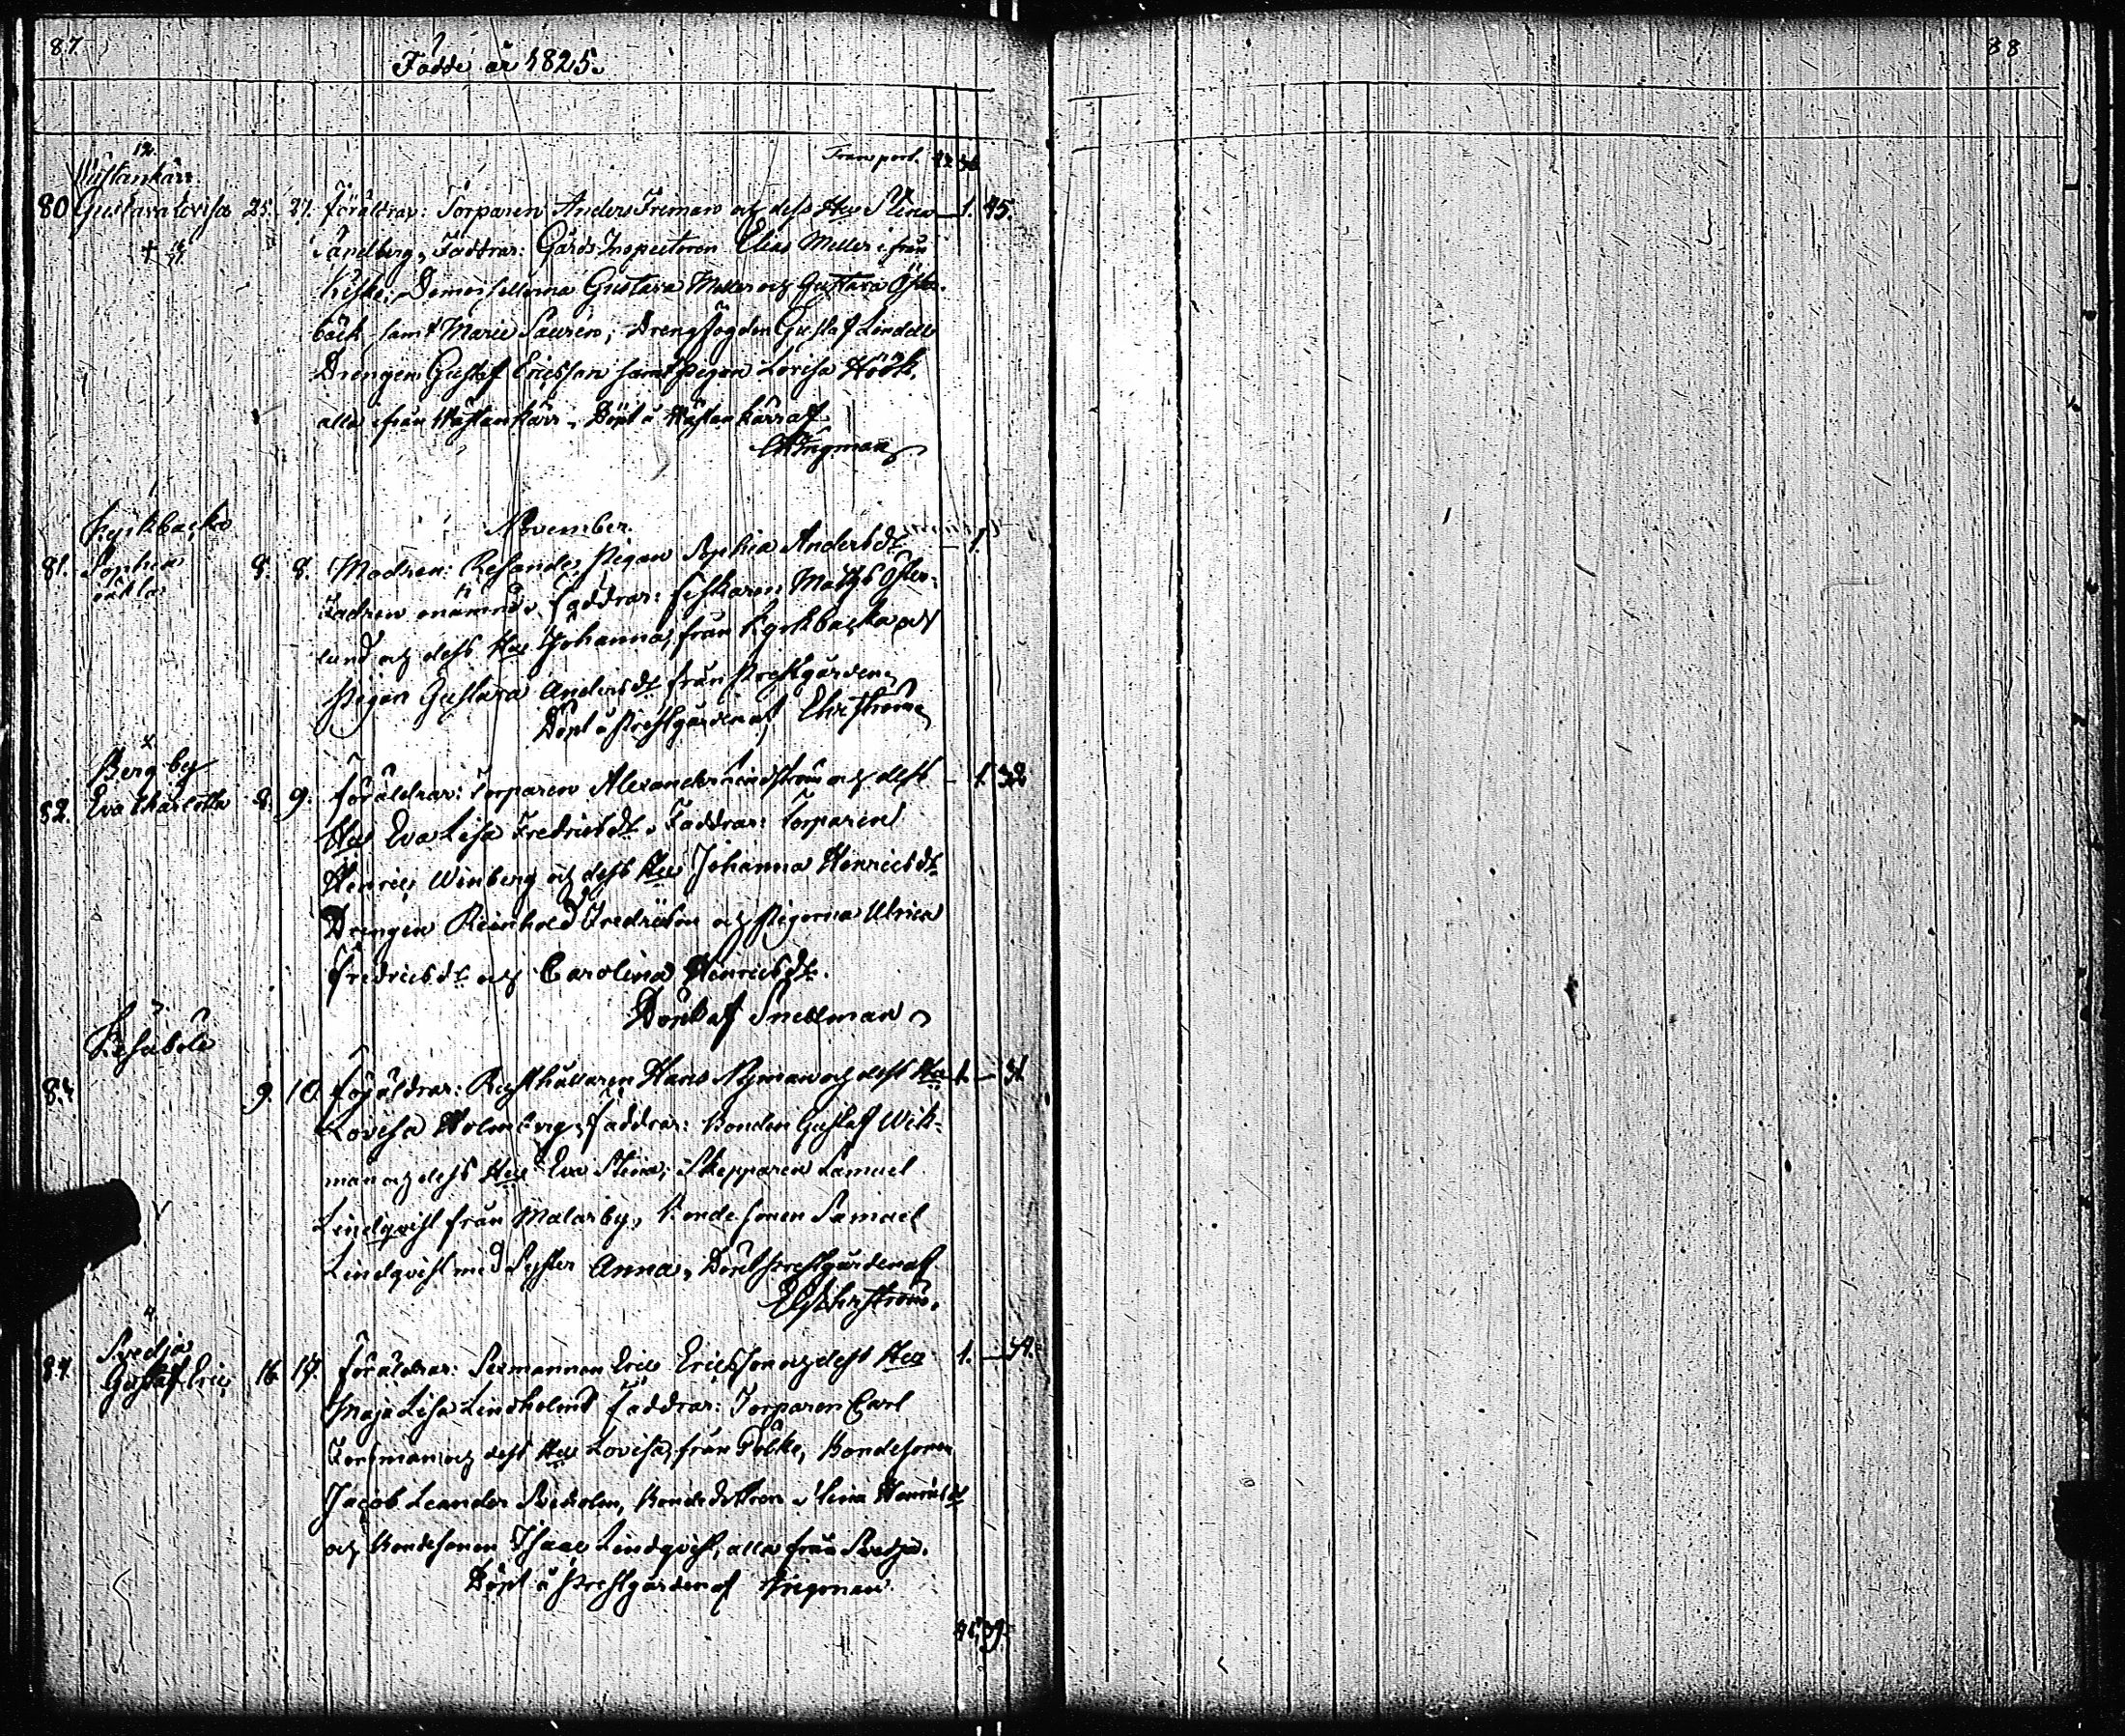 87
Födde år 1825.
88
Transport. 42 36
12
Wästankärr
80 Gustava Lovisa 25. 27. Föräldrar: Torparen Anders Freman och dess Hu Stina 1. 45.
Sandberg, Faddrar: Gårds Inspectoren Elias Meller ifrån
Demoisellerna Gustava Meller och Gustava Öster-
bäck samt Maria Sauren; Drengfogden Gustaf Lindell
Drengen Gustaf Ericsson samt Pigan Lovisa Höök,
alla ifrån Wästankärr, Döpt i Wästankärr af
Ingman
November.
Kyrkbacka
81. Sophia 8. 8. Modren: Resande Pigan Sophia Andersdr 1.
oäkta
Fadren onämnd, Faddrar: Fiskaren Matts Öster-
lund och dess Hu Johanna, från Kyrkbacka och
Pigan Gustava Andersdr från Prestgården,
Döpt i Prestgården af Ehrström
Bergby
82. Eva Charlotta 8. 9. Föräldrar: Torparen Alexander Lindström och dess 1. 32
Hu Eva Lisa Fredricsdr, Faddrar: Torparen
Henric Winberg och dess Hu Johanna Henricsdr
Drengen Reinhold Fredricson och Pigorna Ulrica
Fredricsdr och Carolina Henricsdr.
Döpt af Snellman
Kesaböle
83. 9. 10 Föräldrar: Rusthållaren Hans Nyman och dess Hu 1. 31
Lovisa Holmberg, Faddrar: Bonden Gustaf Wik-
man och dess Hu Eva Stina, Skepparen Samuel
Lindqvist från Malarby, Bondesonen Samuel
Lindqvist med Syster Anna, Döpt Prestgården af
Ehrström.
Svedja
84. Gustaf Eric 16. 17. Föräldrar: Sexmannen Eric Ericsson och dess Hu 1. 41.
Maja Lisa Lindholm, Faddrar: Torparen Carl
Forsman och dess Hu Lovisa, från Pölke, Bondesonen
Jacob Leander Svedja, Bondedottren Stina Henricsdr
och Bondesonen Isaac Lindqvist, alla från Svedja.
Döpt i Prestgården af Ingman